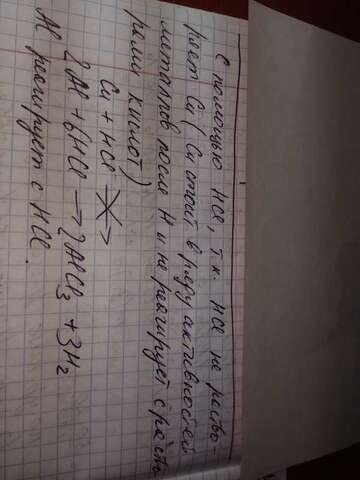 С помощью HCl, т.к. HCl не раство-
ряет Cu (Cu стоит в ряду активностей
металлов после H и не реагирует с раство
рами кислот)
Cu + HCl ⇸
2Al + 6HCl → 2AlCl₃ + 3H₂
Al реагирует с HCl.